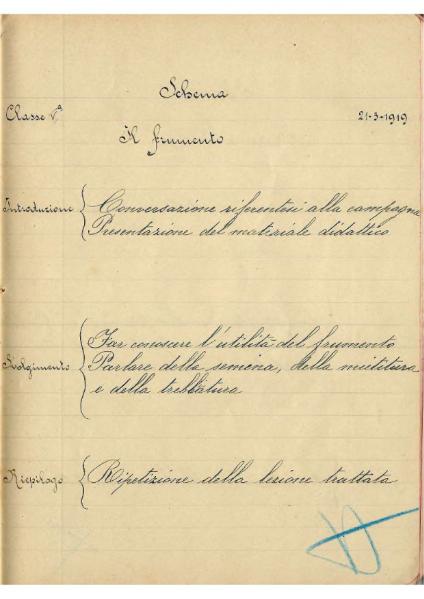 Schema
Classe V.ª 21-3-1919
Il frumento
Introduzione { Conversazione riferentesi alla campagna
Presentazione del materiale didattico
Svolgimento { Far conoscere l'utilità del frumento
Parlare della semina, della mietitura
e della trebbiatura
Riepilogo { Ripetizione della lezione trattata